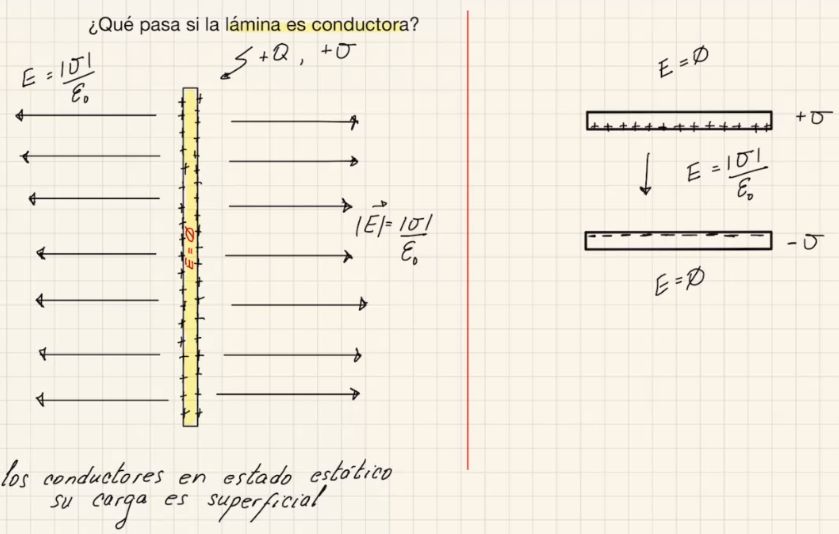 ¿Qué pasa si la lámina es conductora?
+Q, +σ
E = |σ|/ε₀
E = ∅
|E⃗| = |σ|/ε₀
los conductores en estado estático
su carga es superficial
E = ∅
+σ
E = |σ|/ε₀
-σ
E = ∅